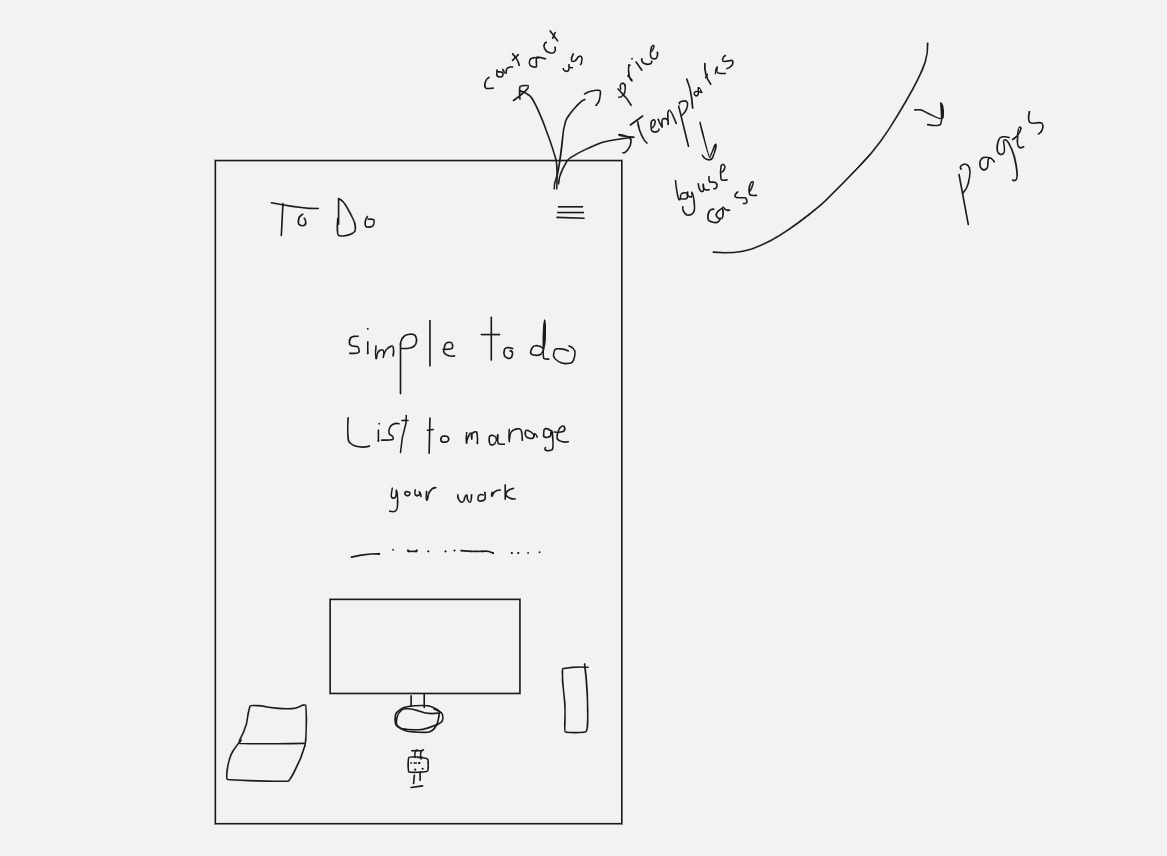 contact
us
price
Templates
by use
case
pages
To Do
simple to do
List to manage
your work